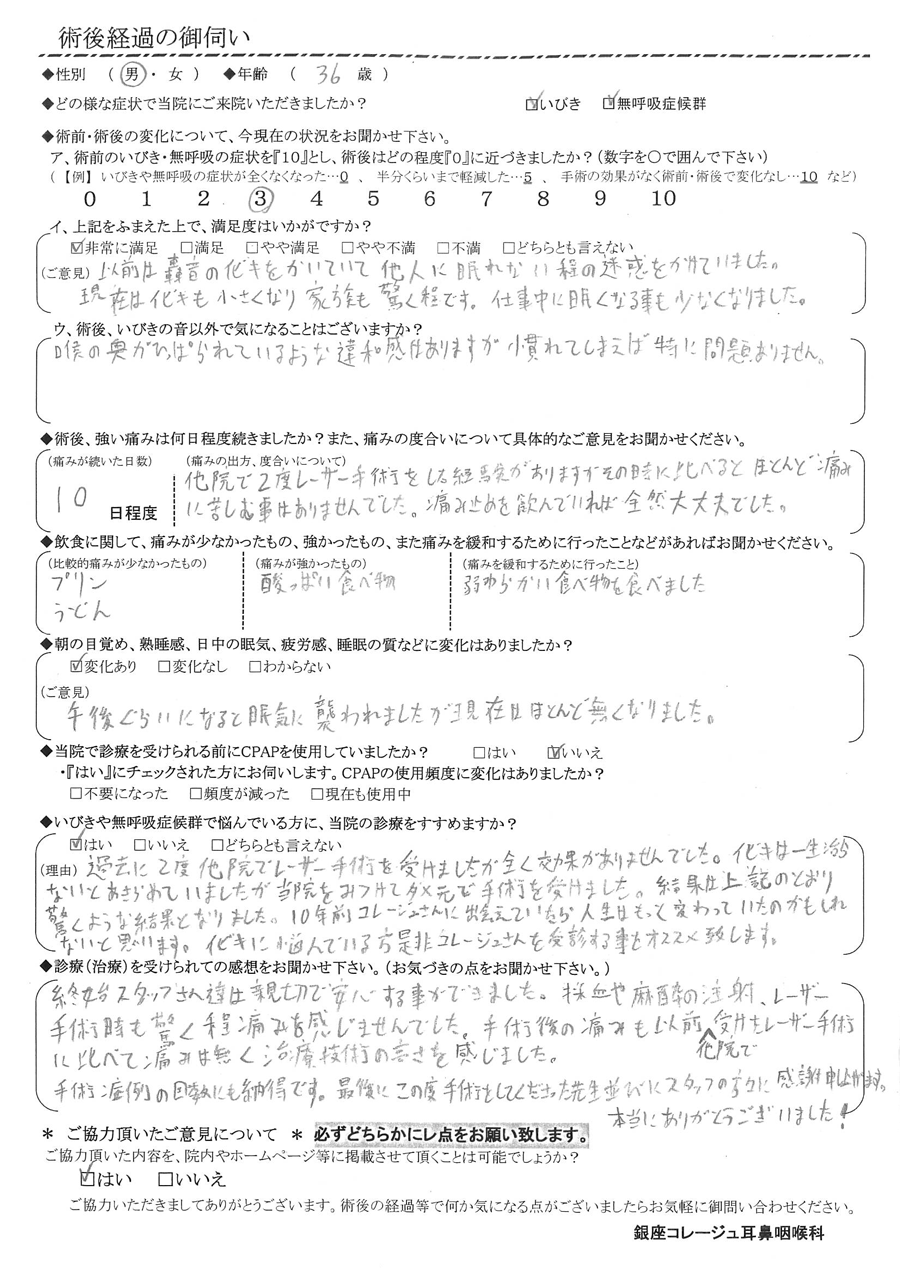 術後経過の御伺い
◆性別 （ 男 ・ 女 ） ◆年齢 （ 36 歳 ）
◆どの様な症状で当院にご来院いただきましたか？ ☑いびき ☑無呼吸症候群
◆術前・術後の変化について、今現在の状況をお聞かせ下さい。
ア、術前のいびき・無呼吸の症状を『10』とし、術後はどの程度『0』に近づきましたか？（数字を〇で囲んで下さい）
（【例】いびきや無呼吸の症状が全くなくなった…0 、 半分くらいまで軽減した…5 、 手術の効果がなく術前・術後で変化なし…10 など）
0 1 2 ③ 4 5 6 7 8 9 10
イ、上記をふまえた上で、満足度はいかがですか？
☑非常に満足 □満足 □やや満足 □やや不満 □不満 □どちらとも言えない
（ご意見） 以前は轟音のイビキをかいていて他人に眠れない程の迷惑をかけていました。
現在はイビキも小さくなり家族も驚く程です。仕事中に眠くなる事も少なくなりました。
ウ、術後、いびきの音以外で気になることはございますか？
喉の奥がひっぱられているような違和感はありますが慣れてしまえば特に問題ありません。
◆術後、強い痛みは何日程度続きましたか？また、痛みの度合いについて具体的なご意見をお聞かせください。
（痛みが続いた日数） （痛みの出方、度合いについて）
他院で2度レーザー手術をした経験がありますがその時に比べると ほとんど痛み
10 日程度 に苦しむ事はありませんでした。痛み止めを飲んでいれば全然大丈夫でした。
◆飲食に関して、痛みが少なかったもの、強かったもの、また痛みを緩和するために行ったことなどがあればお聞かせください。
（比較的痛みが少なかったもの） （痛みが強かったもの） （痛みを緩和するために行ったこと）
プリン 酸っぱい食べ物 弱わらかい食べ物を食べました
うどん
◆朝の目覚め、熟睡感、日中の眠気、疲労感、睡眠の質などに変化はありましたか？
☑変化あり □変化なし □わからない
（ご意見）
午後ぐらいになると眠気に襲われましたが現在はほとんど無くなりました。
◆当院で診療を受けられる前にCPAPを使用していましたか？ □はい ☑いいえ
・『はい』にチェックされた方にお伺いします。CPAPの使用頻度に変化はありましたか？
□不要になった □頻度が減った □現在も使用中
◆いびきや無呼吸症候群で悩んでいる方に、当院の診療をすすめますか？
☑はい □いいえ □どちらとも言えない
（理由） 過去に2度他院でレーザー手術を受けましたが全く効果がありませんでした。イビキは一生治ら
ないとあきらめていましたが当院をみつけてダメ元で手術を受けました。結果は上記のとおり
驚くような結果となりました。10年前コレージュさんに出会えていたら人生はもっと変わっていたのかもしれ
ないと思います。イビキに悩んでいる方是非コレージュさんを受診する事をオススメ致します。
◆診療（治療）を受けられての感想をお聞かせ下さい。（お気づきの点をお聞かせ下さい。）
終始スタッフさん達は親切で安心する事ができました。採血や麻酔の注射、レーザー
手術時も驚く程痛みを感じませんでした。手術後の痛みも以前他院で受けたレーザー手術
に比べて痛みは無く治療技術の高さを感じました。
手術症例の回数にも納得です。最後にこの度手術をしてくださった先生並びにスタッフの方々に感謝申上げます。
本当にありがとうございました！
＊ ご協力頂いたご意見について ＊ 必ずどちらかにレ点をお願い致します。
ご協力頂いた内容を、院内やホームページ等に掲載させて頂くことは可能でしょうか？
☑はい □いいえ
ご協力いただきましてありがとうございます。術後の経過等で何か気になる点がございましたらお気軽に御問い合わせください。
銀座コレージュ耳鼻咽喉科